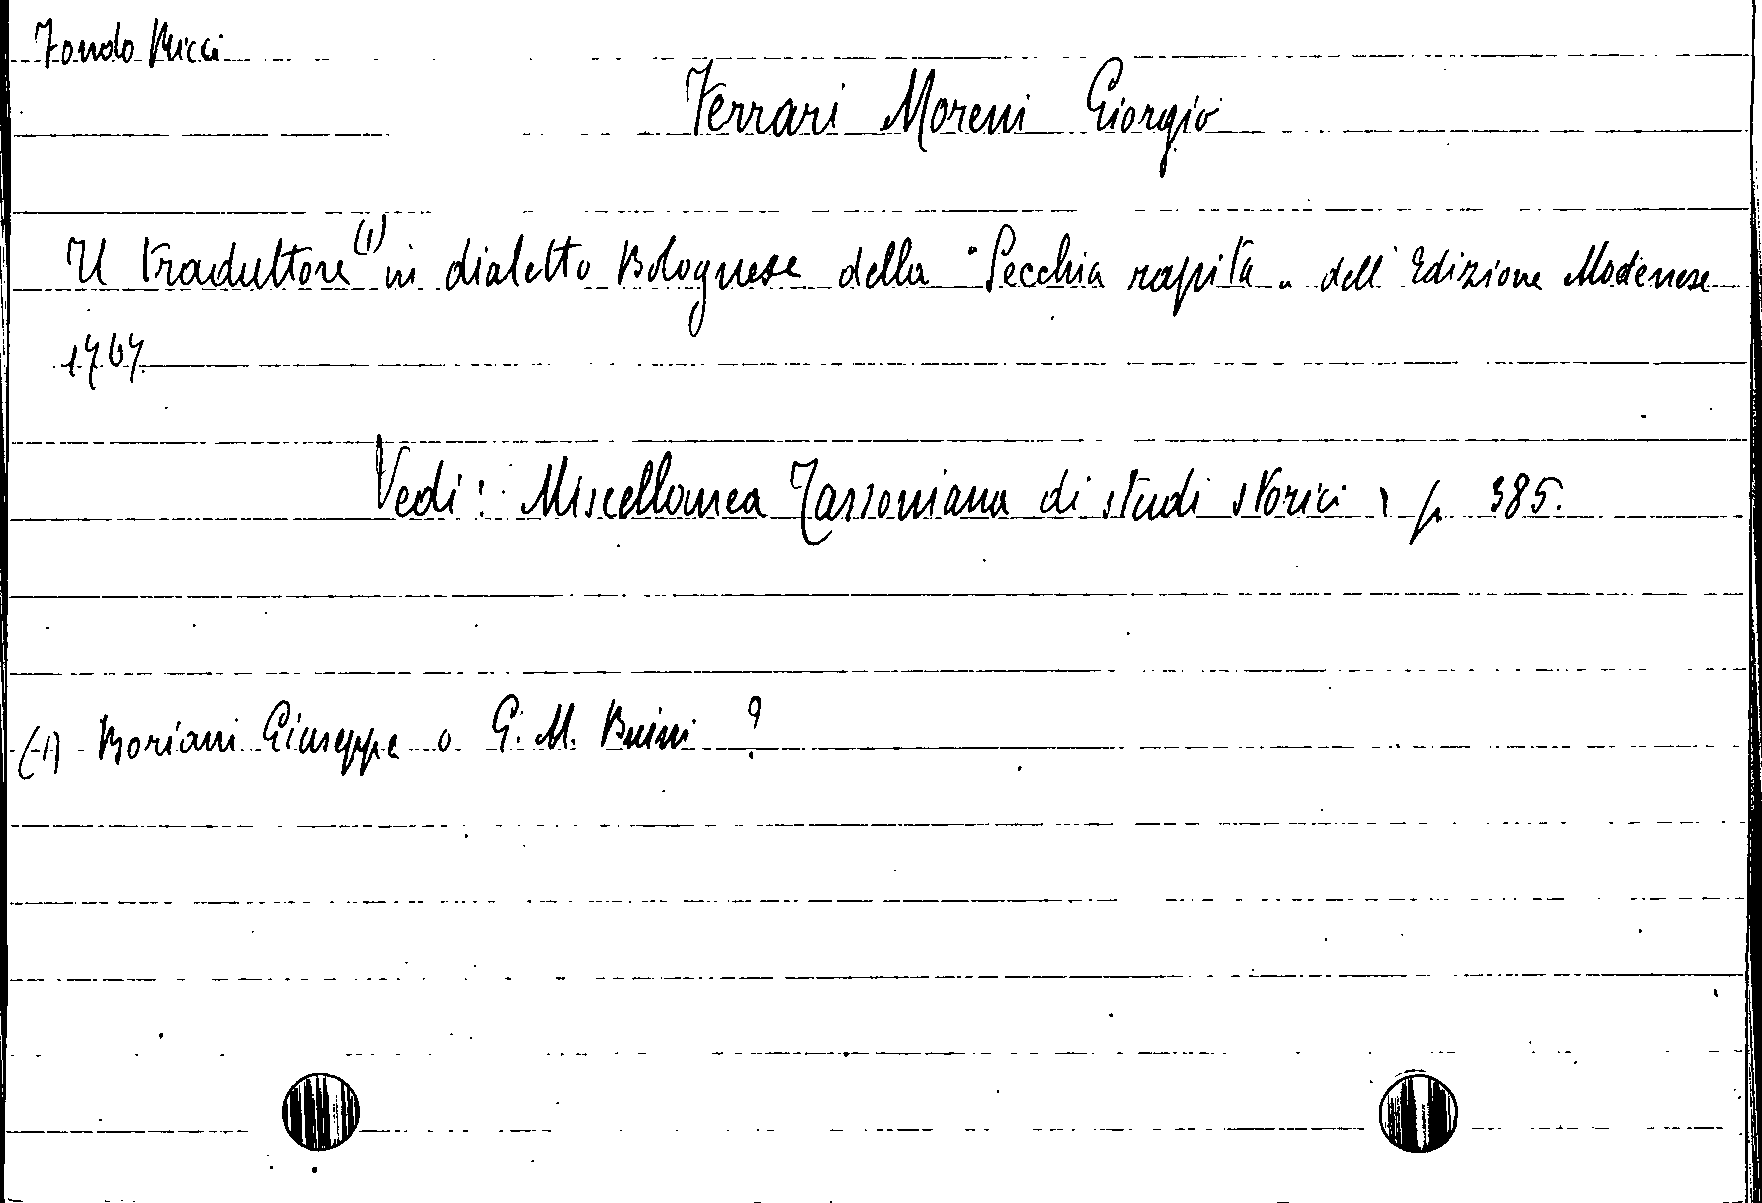 Fondo Ricci
Ferrari Moreni Giorgio
Il traduttore (1) in dialetto Bolognese della "Secchia rapita" dell'Edizione Modenese
1767
Vedi: Miscellanea Tassoniana di studi storici, p. 385.
(1) Boriani Giuseppe o G. M. Buini ?